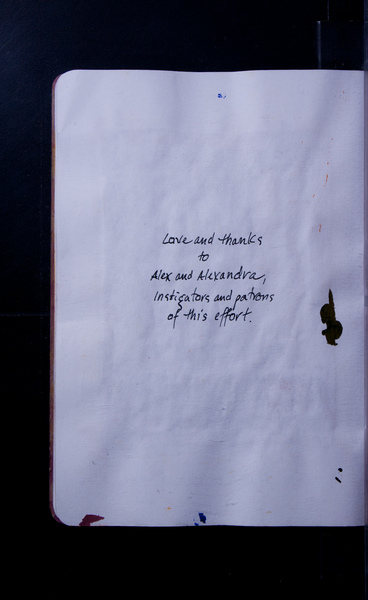 Love and thanks
to
Alex and Alexandra,
Instigators and patrons
of this effort.